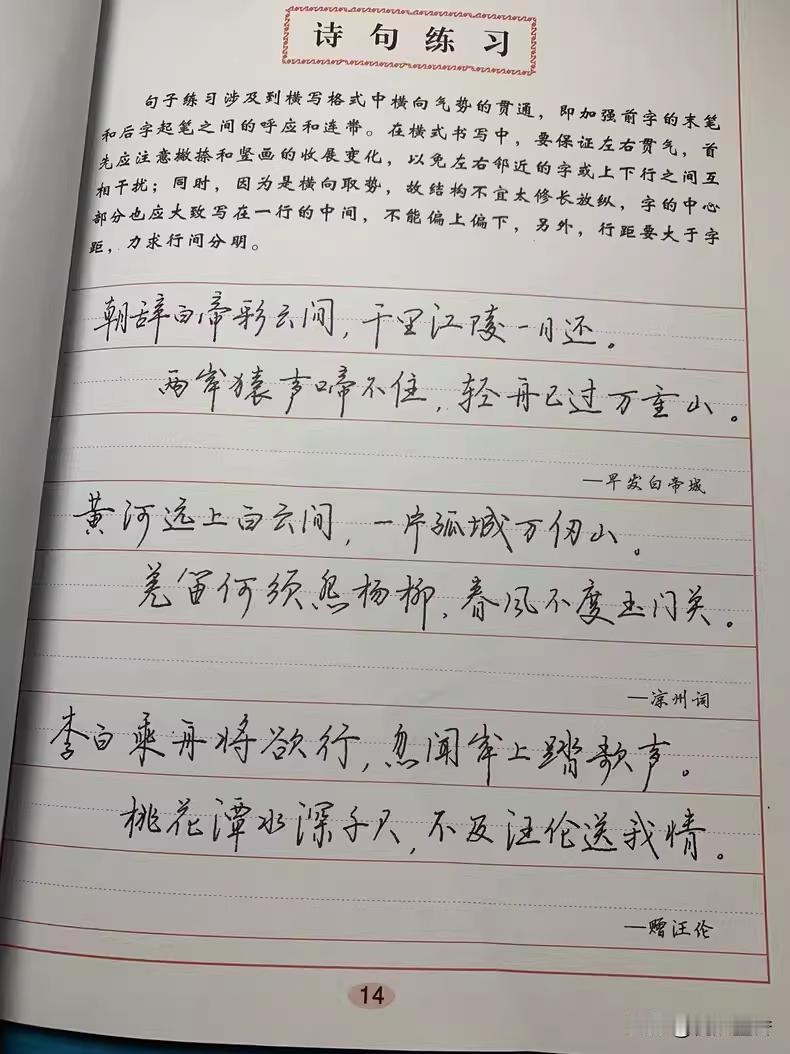 诗句练习
句子练习涉及到横写格式中横向气势的贯通，即加强前字的末笔
和后字起笔之间的呼应和连带。在横式书写中，要保证左右贯气，首
先应注意撇捺和竖画的收展变化，以免左右邻近的字或上下行之间互
相干扰；同时，因为是横向取势，故结构不宜太修长放纵，字的中心
部分也应大致写在一行的中间，不能偏上偏下，另外，行距要大于字
距，力求行间分明。
朝辞白帝彩云间，千里江陵一日还。
两岸猿声啼不住，轻舟已过万重山。
—早发白帝城
黄河远上白云间，一片孤城万仞山。
羌笛何须怨杨柳，春风不度玉门关。
—凉州词
李白乘舟将欲行，忽闻岸上踏歌声。
桃花潭水深千尺，不及汪伦送我情。
—赠汪伦
14